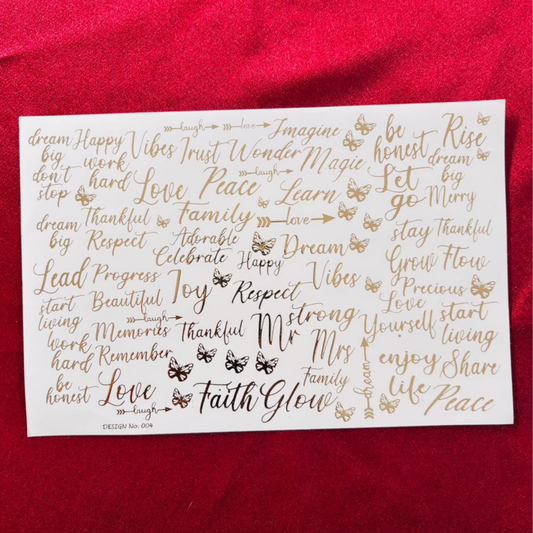 laugh love Imagine
dream big Happy Vibes Trust Wonder Magic be honest Rise
don't stop work hard Love Peace laugh Learn Let go dream big Merry
dream big Thankful Family love stay Thankful
Respect Adorable Celebrate Happy Dream Grow Flow
Lead Progress Joy Respect Vibes Precious
start living Beautiful laugh Mr strong Love Yourself start living
work hard Memories Thankful Mrs
Remember dream enjoy life Share
be honest Love laugh Faith Glow Family Peace
DESIGN No. 004